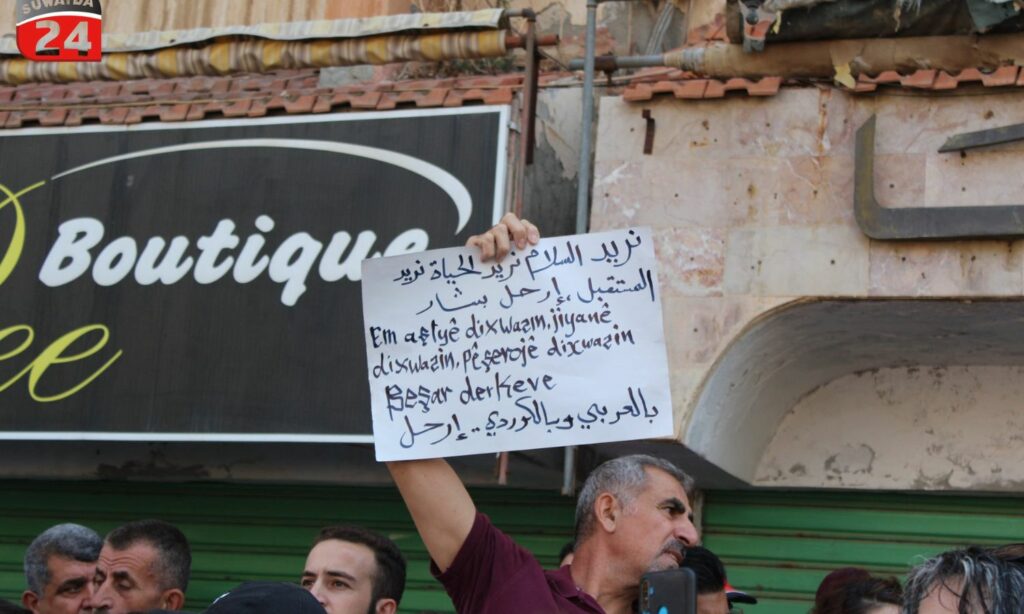 SUWAYDA
24
Boutique
ee
نريد السلام نريد الحياة نريد
المستقبل، إرحل بشار
Em aştyê dixwazin, jiyanê
dixwazin, pêşerojê dixwazin
Beşar derkeve
بالعربي وبالكوردي .. إرحل